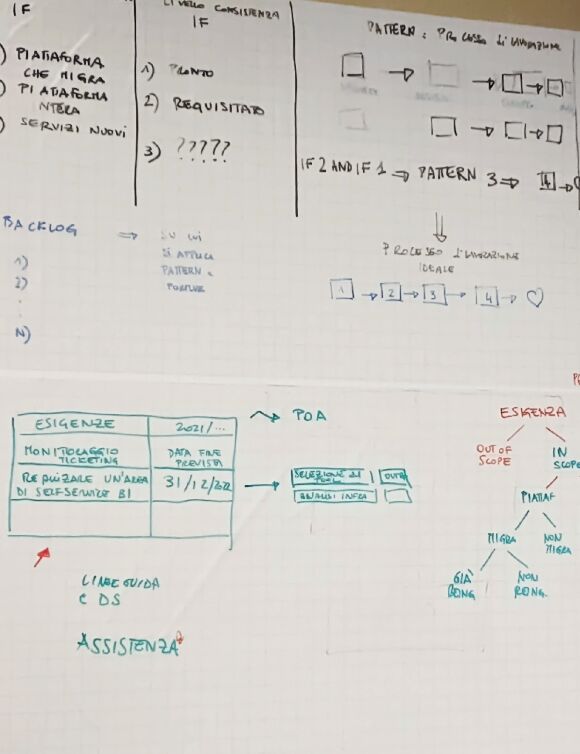 IF
) PIATTAFORMA
CHE MIGRA
) PIATTAFORMA
INTERA
) SERVIZI NUOVI
LIVELLO CONSISTENZA
IF
1) PRONTO
2) REQUISITATO
3) ?????
PATTERN: PROCESSO di LAVORAZIONE
IF 2 AND IF 1 ⇒ PATTERN 3 ⇒ 4 →
PROCESSO di LAVORAZIONE
IDEALE
1 → 2 → 3 → 4 → ♡
BACKLOG ⇒ SU CUI
SI APPLICA
PATTERN e
1)
2)
N)
ESIGENZE 2021/...
MONITORAGGIO
TICKETING
DATA FINE
PREVISTA
REALIZZARE UN'AREA
DI SELF SERVICE BI
31/12/202
POA
SELEZIONE DI
TOOL
ANALISI INFRA
LINEE GUIDA
C DS
ASSISTENZA?
ESIGENZA
OUT OF
SCOPE
IN
SCOPE
PIATTAF
MIGRA
NON
MIGRA
GIÀ
NON